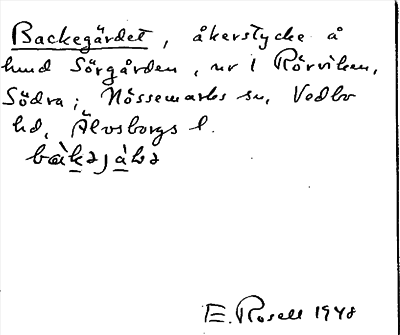 Backegärdet, åkerstycke å
hmd Sörgården, nr 1 Rörviken,
Södra; Nössemarks sn, Vedbo
hd, Älvsborgs l.
E. Rosell 1948